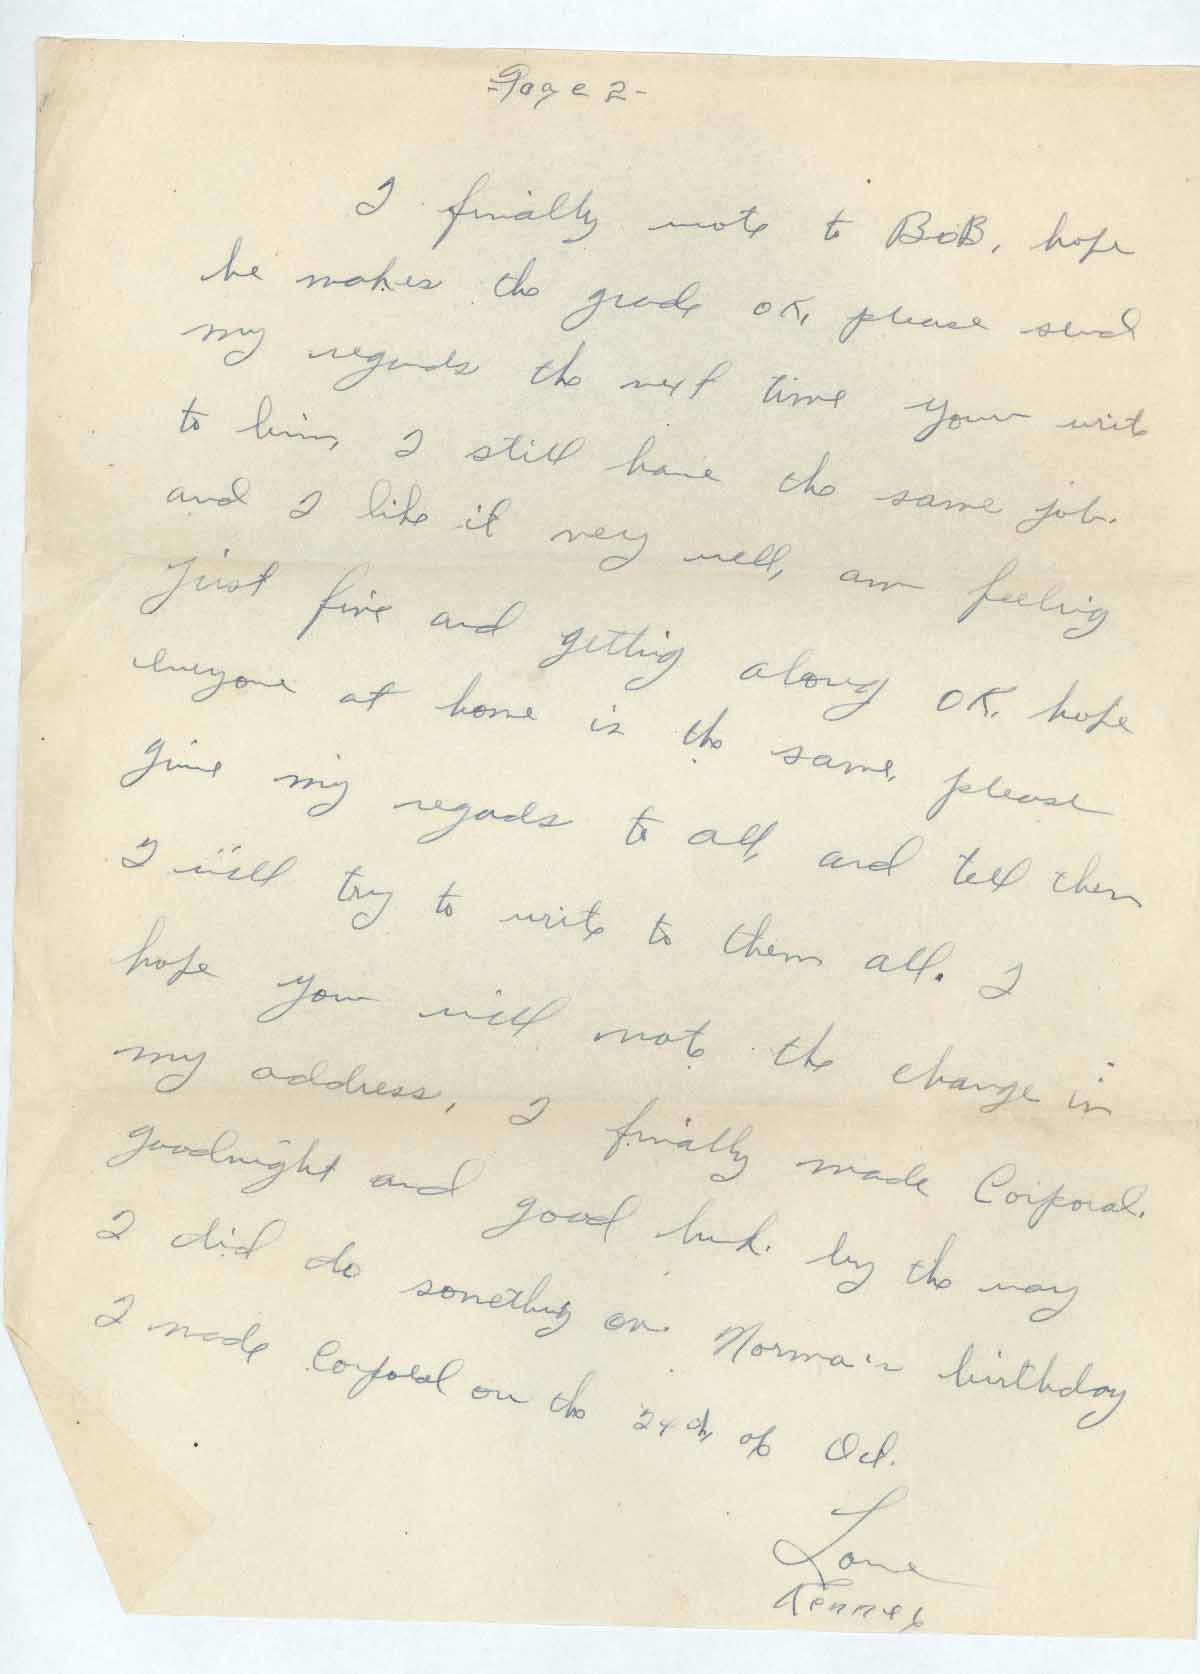 -Page 2-
I finally wrote to BoB, hope
he makes the grade OK, please send
my regards the next time your write
to him, I still have the same job.
and I like it very well, am feeling
just fine and getting along OK. hope
everyone at home is the same, please
give my regads to all, and tell them
I will try to write to them all. I
hope your will note the change in
my address, I finally made Corporal.
goodnight and good luck. by the way
I did do something on Norma's birthday
I made Corporal on the 24th, of Oct.
Love